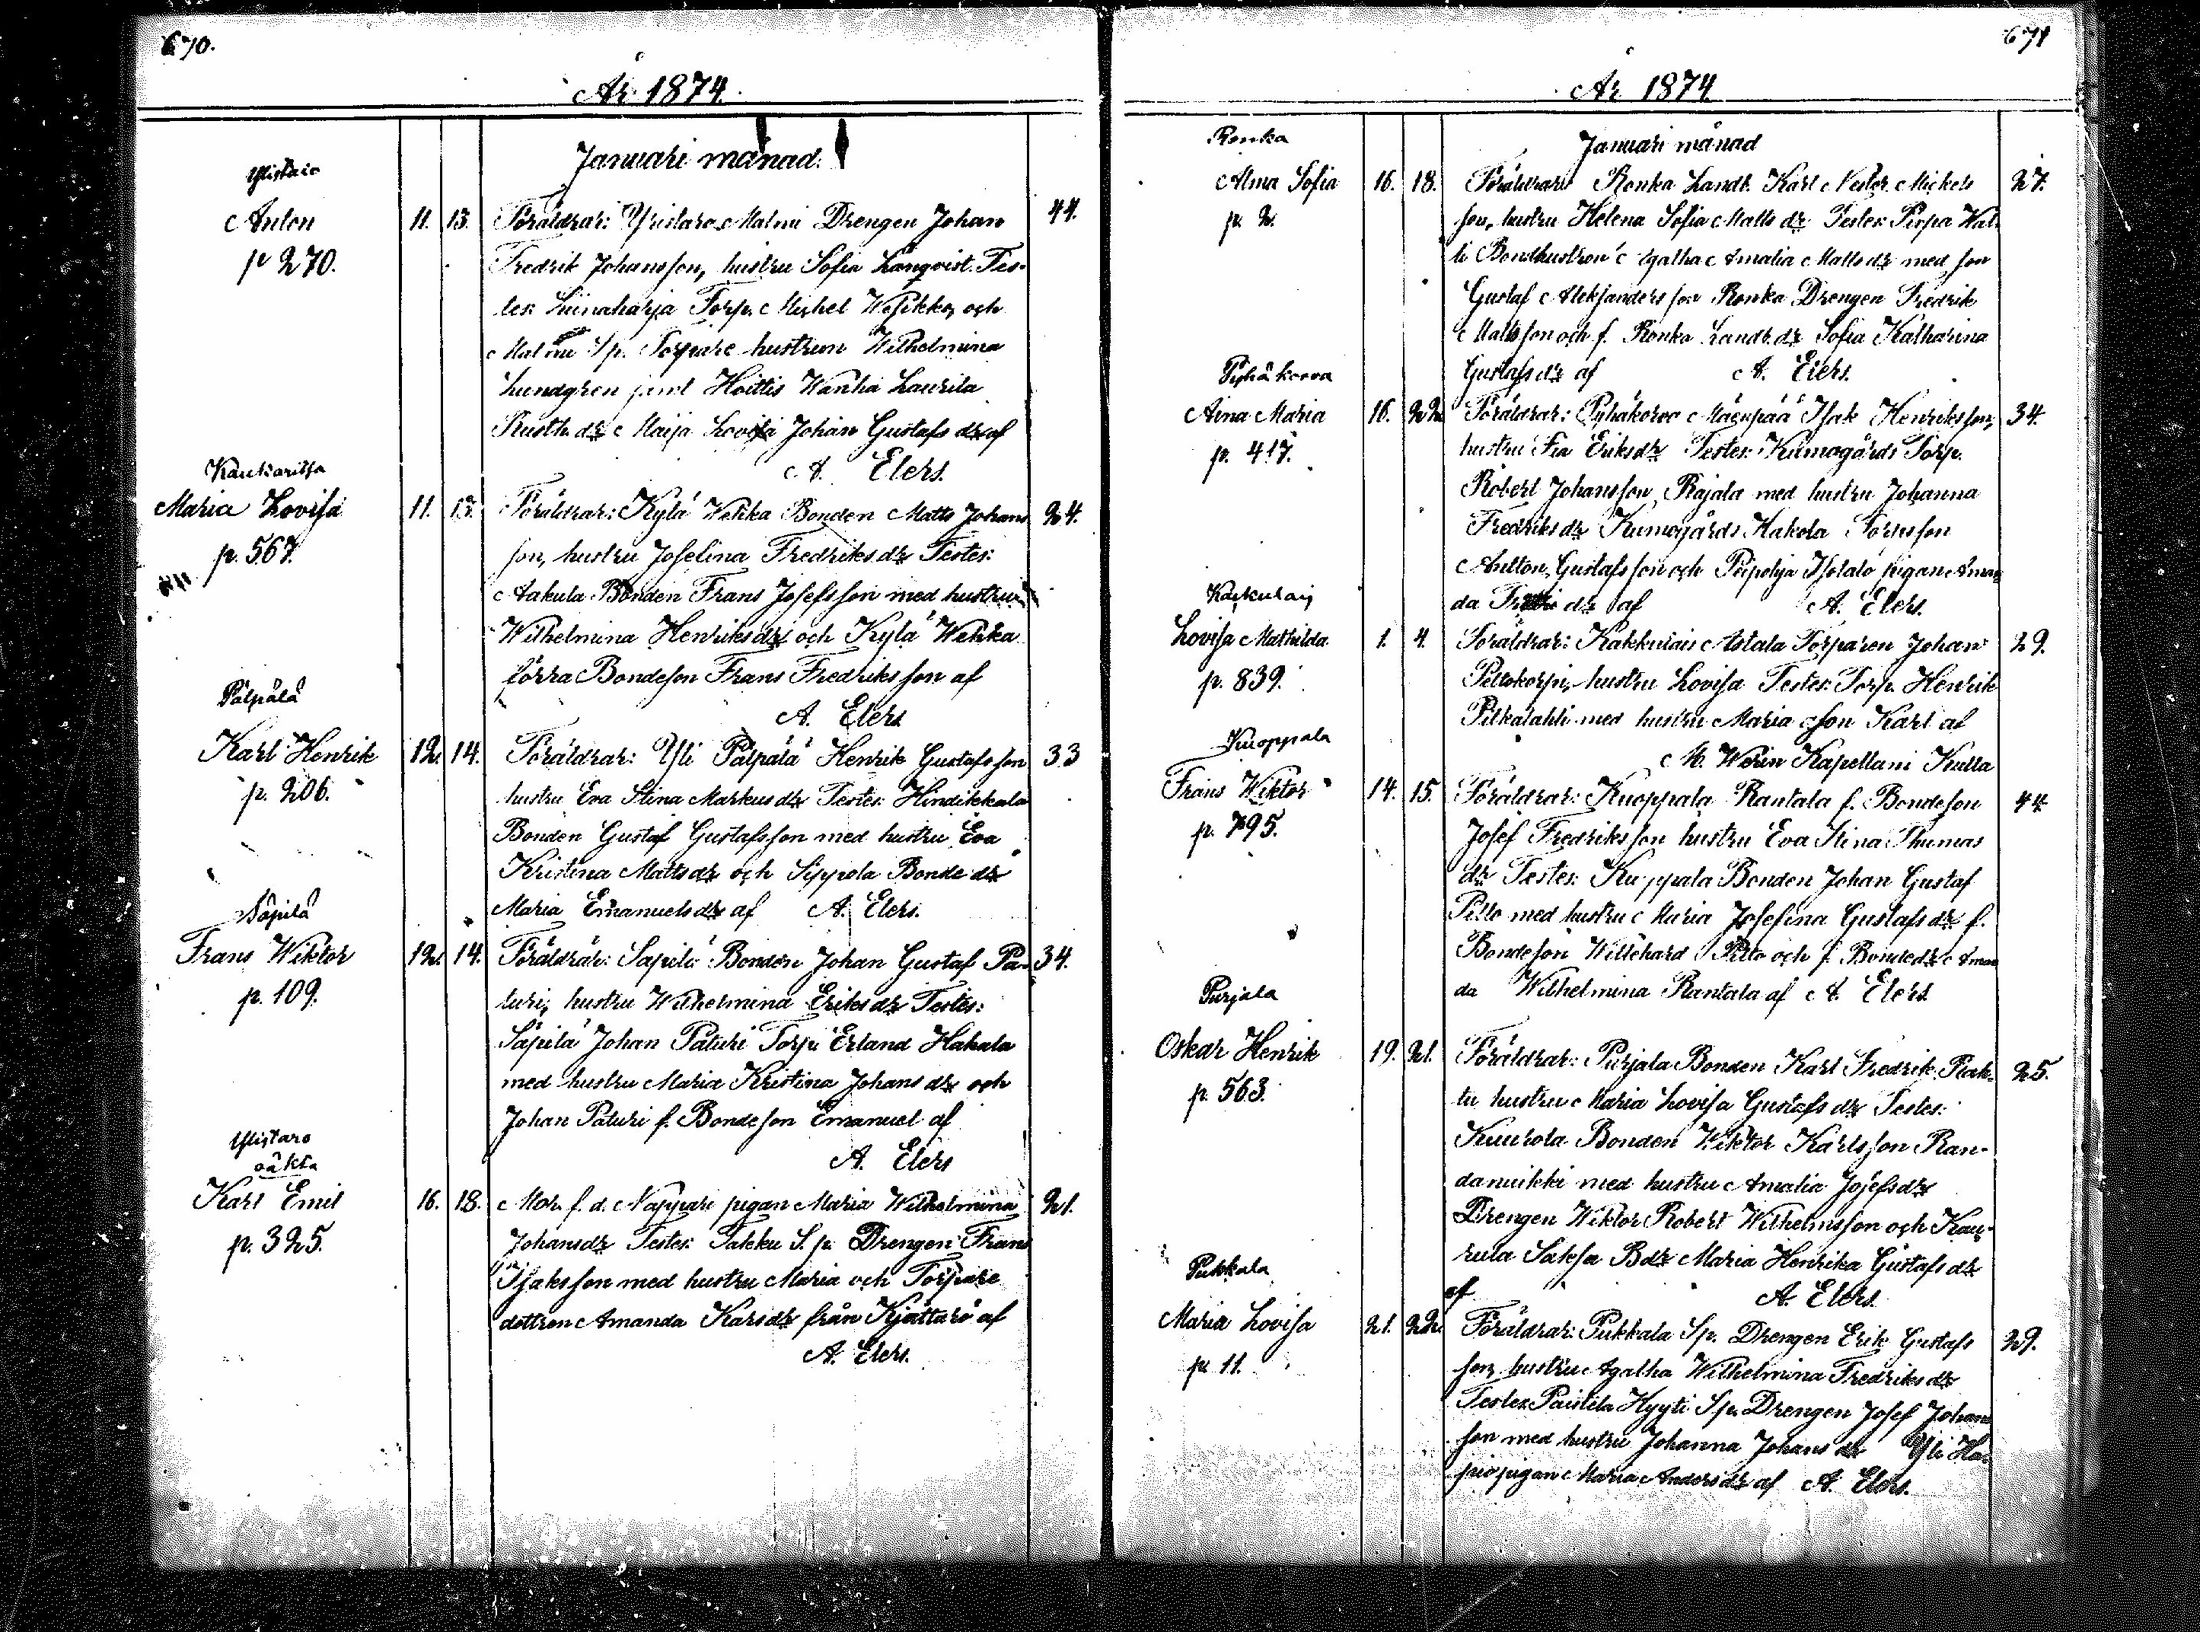 670.
År 1874.
Januari månad.
Ylistaro
Anton 11. 13. Föräldrar: Ylistaro Malmi Drengen Johan 44.
p 270. Fredrik Johansson, hustru Sofia Lanqvist. Tes-
tes: Liinaharja Torp. Michel Wesikko, och
Malmi Sp. Torpare hustrun Wilhelmina
Lundgren samt Hoittis Wanha Laurila
Rusth. dr Maija Lovisa Johan Gustafs dr af
A. Elers.
Kaukaritsa
Maria Lovisa 11. 13. Föräldrar: Kylä Wehka Bonden Matts Johans 24.
p. 567. son, hustru Josefina Fredriks dr Testes:
Aakula Bonden Frans Josefsson med hustru
Wilhelmina Henriks dr och Kylä Wehka
förra Bondeson Frans Fredriksson af
A. Elers
Pälpälä
Karl Henrik 12. 14. Föräldrar: Yli Pälpälä Henrik Gustafsson 33
p. 206. hustru Eva Stina Markus dr Testes: Hindikkala
Bonden Gustaf Gustafsson med hustru Eva
Kristina Matts dr och Sippola Bonde dr
Maria Emanuels dr af A. Elers.
Säpilä
Frans Wiktor 12. 14. Föräldrar: Säpilä Bonden Johan Gustaf Pa- 34.
p. 109. turi, hustru Wilhelmina Eriks dr Testes:
Säpilä Johan Paturi Torp. Erland Hakala
med hustru Maria Kristina Johans dr och
Johan Paturi f. Bondeson Emanuel af
A. Elers
Ylistaro
oäkta
Karl Emil 16. 18. Mor. f. d. Nappari pigan Maria Wilhelmina 21.
p. 325. Johans dr Testes: Takku S. p. Drengen Frans
Isaksson med hustru Maria och Torpare
dottren Amanda Kars dr från Kjättärö af
A. Elers.
671
År 1874
Januari månad
Ronka
Alma Sofia 16. 18. Föräldrar: Ronka Landb. Karl Nestor Mickels 27.
p. 2. son, hustru Helena Sofia Matts dr Testes: Pirpa Wal-
li Bondhustron Agatha Amalia Matts dr med son
Gustaf Aleksandersson Ronka Drengen Fredrik
Mattsson och f. Ronka Landb. dr Sofia Katharina
Gustafs dr af A. Elers.
Pyhäkorva
Aina Maria 16. 22. Föräldrar: Pyhäkorva Mäenpää Isak Henriksson, 34.
p. 417. hustru Fia Eriks dr Testes: Kumogårds Torp.
Robert Johansson, Rajala med hustru Johanna
Fredriks dr Kumogårds Hakola Torpsson
Anton Gustafsson och Peipohja Isotalo pigan Aman
da dr af A. Elers.
Kakkulais
Lovisa Mathilda 1. 4. Föräldrar: Kakkulais Astala Torparen Johan 29.
p. 839. Peltokorpi, hustru Lovisa Testes: Torp. Henrik
Pitkälahti med hustru Maria o son Karl af
M. Werin Kapellani Kulla
Kuoppala
Frans Wiktor 14. 15. Föräldrar: Kuoppala Rantala f. Bondeson 44.
p. 795. Josef Fredriksson hustru Eva Stina Thomas
dr Testes: Kuppala Bonden Johan Gustaf
Pitto med hustru Maria Josefina Gustafs dr f.
Bondeson Willehard Pitto och f. Bonde dr Aman
da Wilhelmina Rantala af A. Elers
Purjala
Oskar Henrik 19. 21. Föräldrar: Purjala Bonden Karl Fredrik 25.
p. 563. hustru Maria Lovisa Gustafs dr Testes:
Kuurola Bonden Wiktor Karlsson Ran-
danuikki med hustru Amalia Josefs dr
Drengen Wiktor Robert Wilhelmsson och Kau-
rula Saksa B dr Maria Henrika Gustafs dr
af A. Elers.
Pukkala
Maria Lovisa 21. 22. Föräldrar: Pukkala Sp. Drengen Erik Gustafs 29.
p. 11. son, hustru Agatha Wilhelmina Fredriks dr
Testes: Paistila Hyyti Sp. Drengen Josef Johans
son med hustru Johanna Johans dr Yli Ha-
pio pigan Maria Anders dr af A. Elers.